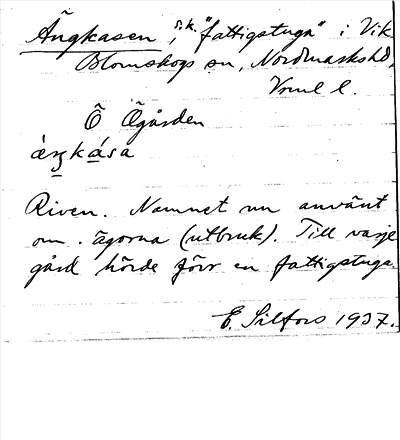 Ängkasen, s.k. "fattigstuga" i Vik
Blomskogs sn, Nordmarks hd,
Vrml l.
Ö Ögården
Riven. Namnet nu använt
om ägorna (utbruk). Till varje
gård hörde förr en fattigstuga.
E. Silfors 1937.